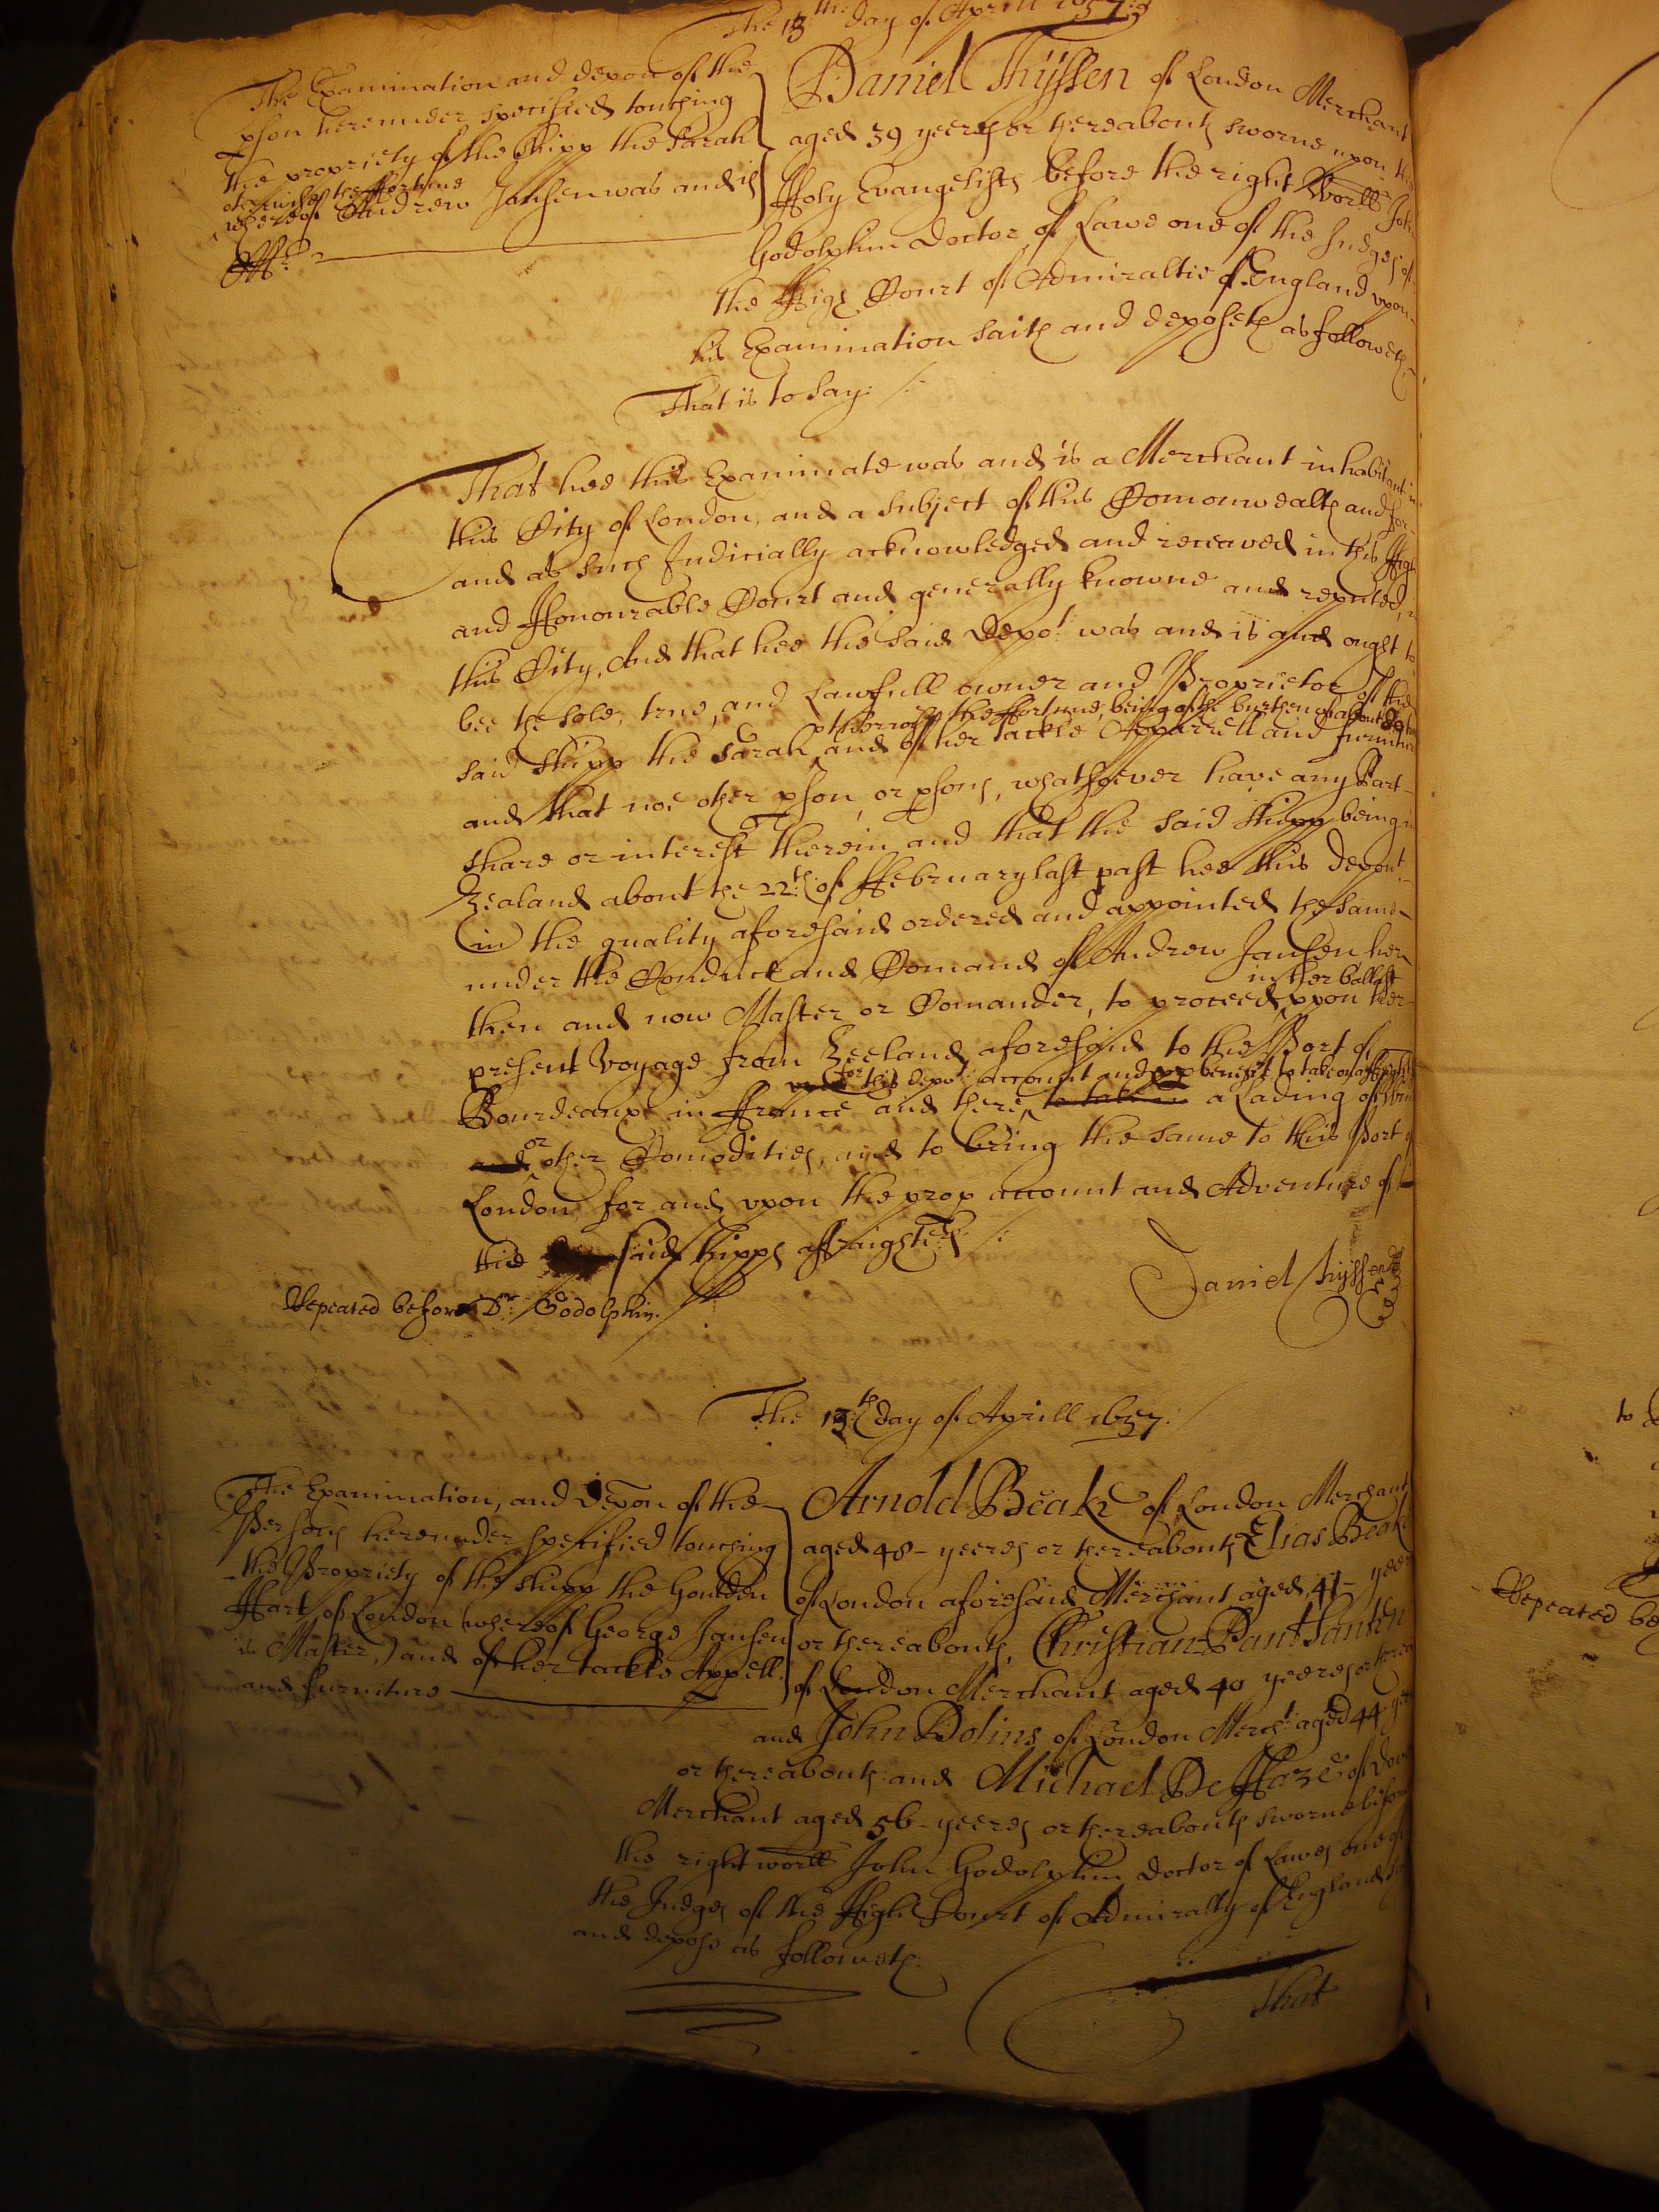 The 13th day of Aprill 1657:
The Examination and depon of the
pson hereunder specified touching
the propriety of the shipp the Sarah
otherwise the ffortune
whereof Andrew Jansen was and is
Mr.
Daniel Thijssen of London Merchant
aged 39 yeeres or thereabouts sworne upon the
Holy Evangelists before the right Worll John
Godolphin Doctor of Lawe one of the Judges of
the High Court of Admiraltie of England upon
his Examination saith and deposeth as followeth
That is to say:
That hee this Examinate was and is a Merchant inhabitant in
this City of London, and a subject of this Comonwealth and for
and as such Judicially acknowledged and receaved in this High
and Honourable Court and generally knowne and reputed, in
this City, And that hee the said Depot was and is and ought to
bee the sole, true, and Lawfull owner and Proprietor of the
otherwise the ffortune, being of the burthen of about 80
said shipp the Sarah and of her tackle Apparrell and furniture
and that noe other pson, or psons, whatsoever have any Part
share or interest therein and that the said shipp being in
Zealand about the 22th of ffebruary last past hee this depont
in the quality aforesaid ordered and appointed the same
under the Conduct and Comand of Andrew Jansen her
in her ballast
then and now Master or Comander, to proceed upon her
present Voyage from Zeeland aforesaid to the Port of
for this depots account and benefit to take
Bourdeaux in ffrance and there to take in a Lading of
or
and other Comodities, and to bring the same to this Port of
London for and upon the prop account and Adventure of
the said shipps
Repeated before Dr. Godolphin.
Daniel Thijssen
The 13th day of Aprill 1657:
The Examination, and Depon of the
Persons hereunder specified touching
the Propriety of the shipp the Goulden
Hart of London (whereof George Jansen
is Master,) and of her tackle Appell.
and furniture
Arnold Beake of London Merchant
aged 48 yeeres or thereabouts Elias Beake
of London aforesaid Merchant aged 41 yeeres
or thereabouts, Christian
of London Merchant aged 40 yeeres or therea
and John Bolins of London Mercht aged 44 yeeres
or thereabouts and Michael De Haze of
Merchant aged 56 yeeres or thereabouts sworne before
the right worll John Godolphin Doctor of Lawes one of
the Judges of the High Court of Admiralty of England
and depose as followeth.
That
to
Repeated be